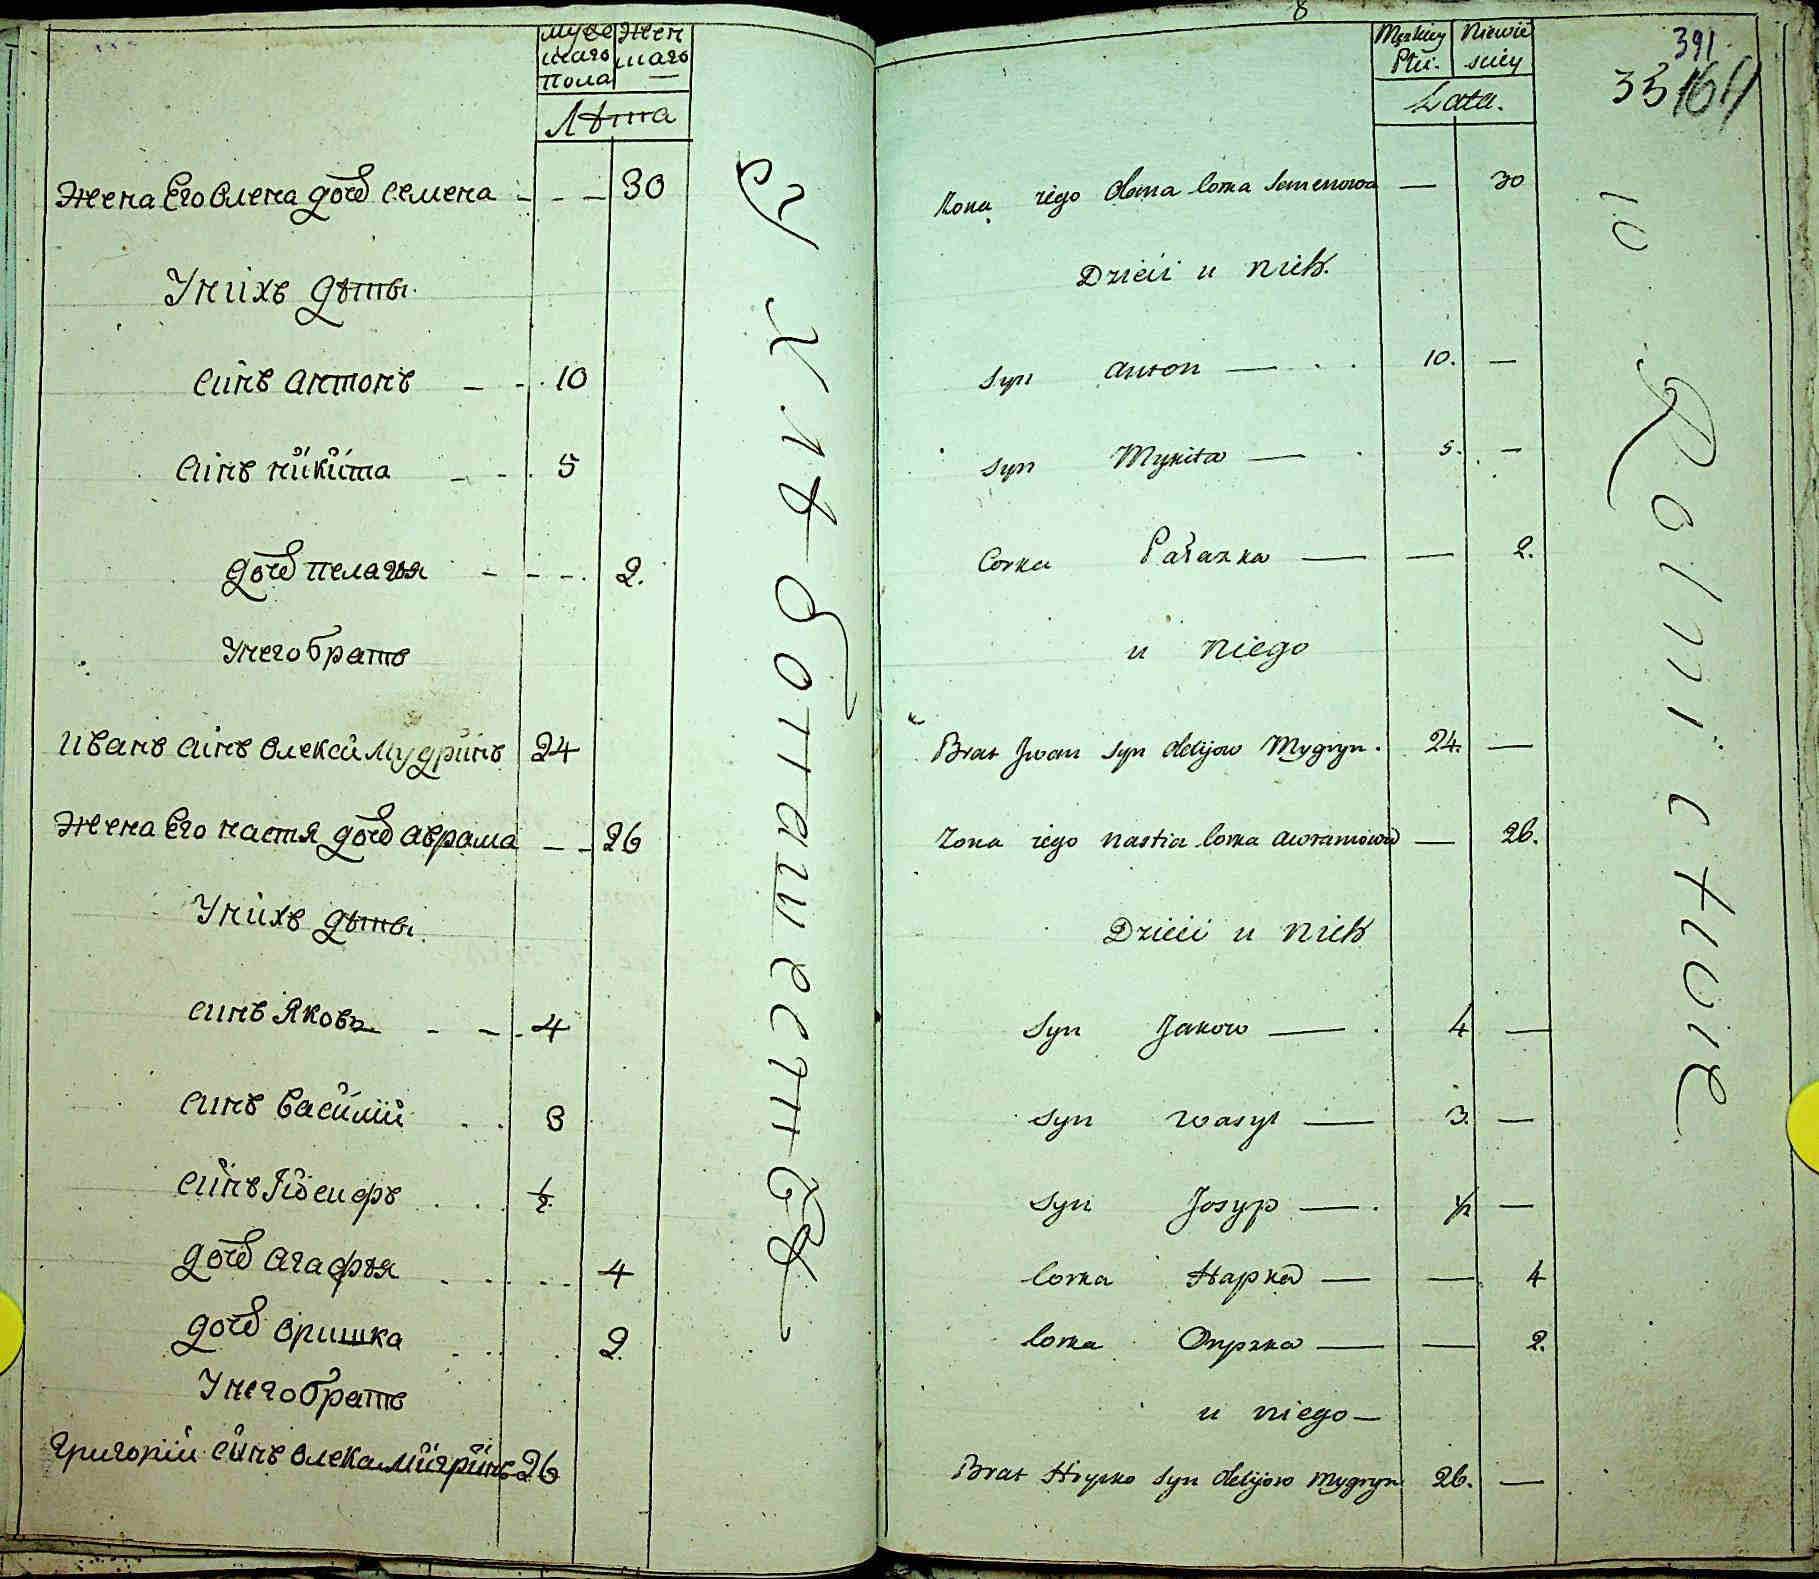 Муже Жен
скаго скаго
пола —
Лѣта
Жена Его Олена дочь Семена - - — 30
У них дѣты
Синъ Антонъ — - 10
Синъ Никита — - 5
дочь Пелагия - - - 2.
У него братъ
Иванъ Синъ Олексы Мудринъ 24
Жена Его Настя дочь Аврама — - 26
У нихъ дѣты
Синъ Яковъ - - - 4
Синъ Василий . . 3
Синъ Иосифъ . . . 1/2
дочь Агафья . . . 4
дочь Оришка . . . 2.
У него братъ
Григорий Синъ Олекси Мигринъ 26
У Хлѣбопашествѣ
8
Męzkiey Niewie
Płci. sciey
Lata.
391
33 164
Zona iego Olena Corka Semenowa — 30
Dzieci u nich.
Syn Anton — . . 10. —
Syn Mykita — . 5. —
Corka Pałazka — — 2.
u niego
Brat Jwan Syn Olexijow Mygryn. 24. —
Zona iego Nastia Corka Awramowa — 26.
Dzieci u nich
Syn Jakow — . 4 —
Syn Wasyl — 3. —
Syn Josyp — . 1/2 —
Corka Hapka — — 4
Corka Oryszka — — 2.
u niego —
Brat Hryzko Syn Olexijow Mygryn 26. —
10
Rolnictwie